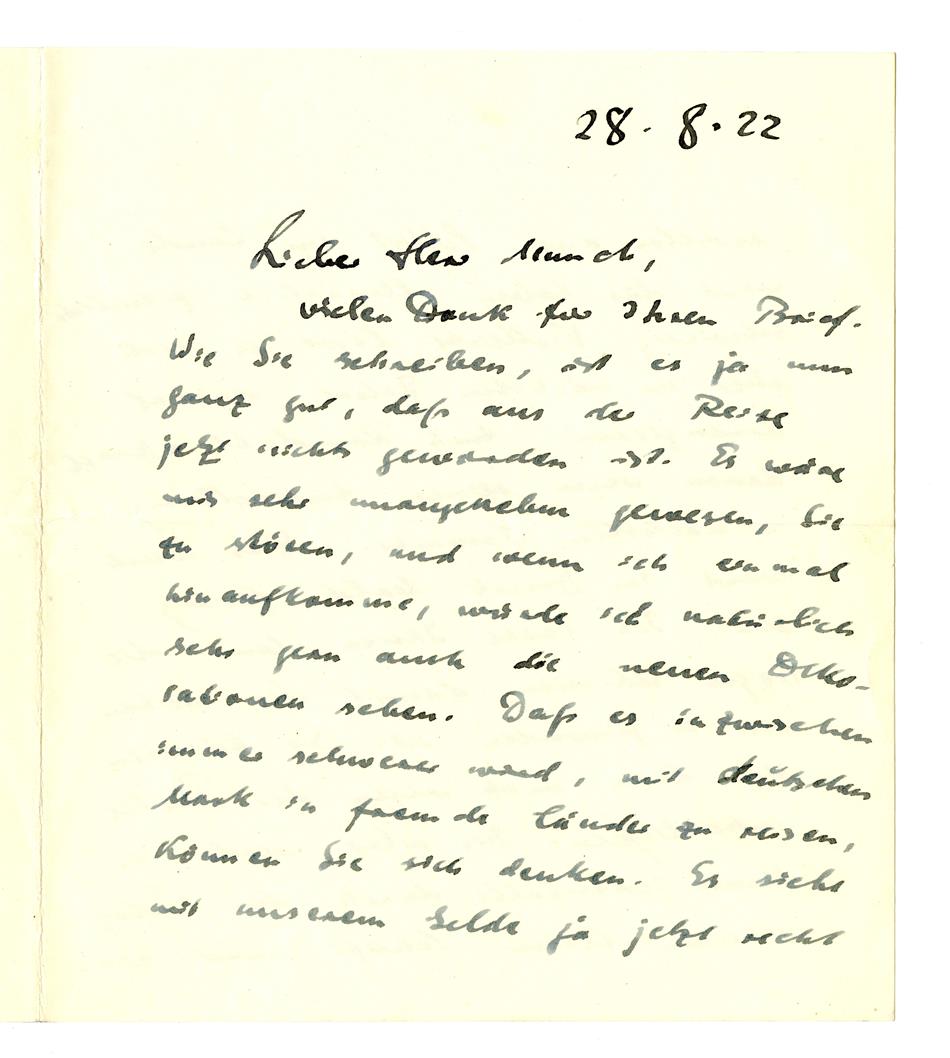 28. 8. 22
Lieber Herr Munch,
vielen Dank für Ihren Brief.
Wie Sie schreiben, ist es ja nun
ganz gut, daß aus der Reise
jetzt nichts geworden ist. Es wäre
mir sehr unangenehm gewesen, Sie
zu stören, und wenn ich einmal
hinaufkomme, würde ich natürlich
sehr gern auch die neuen Deko-
rationen sehen. Daß es inzwischen
immer schwerer wird, mit deutschen
Mark in fremde Länder zu reisen,
können Sie sich denken. Es sieht
mit unserem Gelde ja jetzt recht